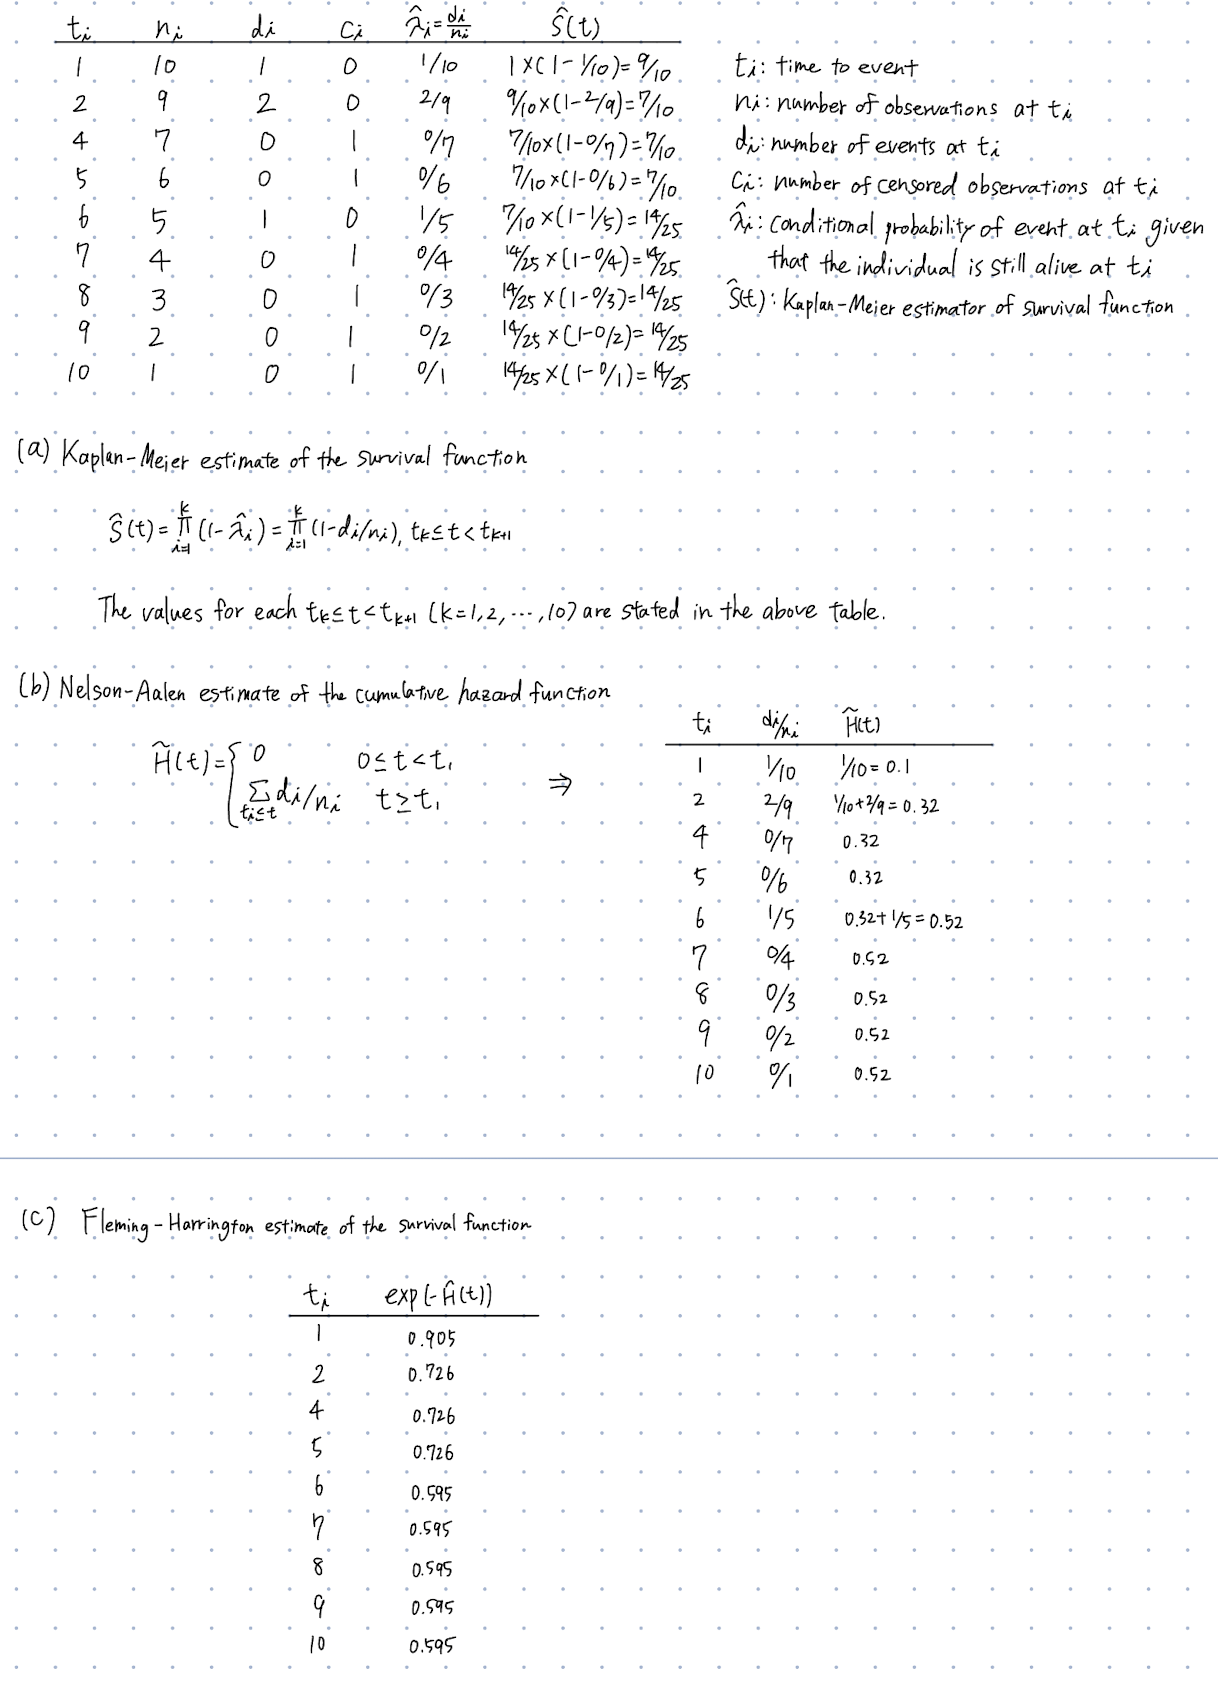 tᵢ nᵢ dᵢ cᵢ λ̂ᵢ=dᵢ/nᵢ Ŝ(t)
1 10 1 0 1/10 1×(1-1/10)=9/10
2 9 2 0 2/9 9/10×(1-2/9)=7/10
4 7 0 1 0/7 7/10×(1-0/7)=7/10
5 6 0 1 0/6 7/10×(1-0/6)=7/10
6 5 1 0 1/5 7/10×(1-1/5)=14/25
7 4 0 1 0/4 14/25×(1-0/4)=14/25
8 3 0 1 0/3 14/25×(1-0/3)=14/25
9 2 0 1 0/2 14/25×(1-0/2)=14/25
10 1 0 1 0/1 14/25×(1-0/1)=14/25
tᵢ: time to event
nᵢ: number of observations at tᵢ
dᵢ: number of events at tᵢ
cᵢ: number of censored observations at tᵢ
λ̂ᵢ: conditional probability of event at tᵢ given
that the individual is still alive at tᵢ
Ŝ(t): Kaplan-Meier estimator of survival function
(a) Kaplan-Meier estimate of the survival function
Ŝ(t)=∏ᵢ₌₁ᵏ(1-λ̂ᵢ)=∏ᵢ₌₁ᵏ(1-dᵢ/nᵢ), tₖ≤t<tₖ₊₁
The values for each tₖ≤t<tₖ₊₁ (k=1,2,···,10) are stated in the above table.
(b) Nelson-Aalen estimate of the cumulative hazard function
H̃(t)={ 0 0≤t<t₁
∑_{tᵢ≤t} dᵢ/nᵢ t≥t₁
⇒
tᵢ dᵢ/nᵢ H̃(t)
1 1/10 1/10=0.1
2 2/9 1/10+2/9=0.32
4 0/7 0.32
5 0/6 0.32
6 1/5 0.32+1/5=0.52
7 0/4 0.52
8 0/3 0.52
9 0/2 0.52
10 0/1 0.52
(C) Fleming-Harrington estimate of the survival function
tᵢ exp(-H̃(t))
1 0.905
2 0.726
4 0.726
5 0.726
6 0.595
7 0.595
8 0.595
9 0.595
10 0.595